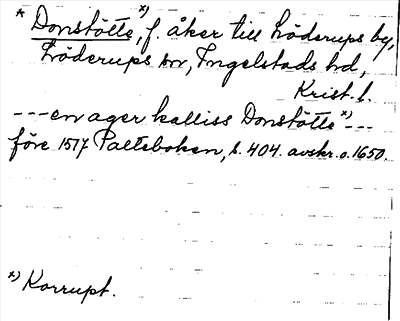 * Donstötte x), f. åker till Löderups by,
Löderups sn, Ingelstads hd,
Krist. l.
---en ager kalliss Donstötte x)---
före 1517 Palteboken, s. 404. avskr. o. 1650.
x) Korrupt.